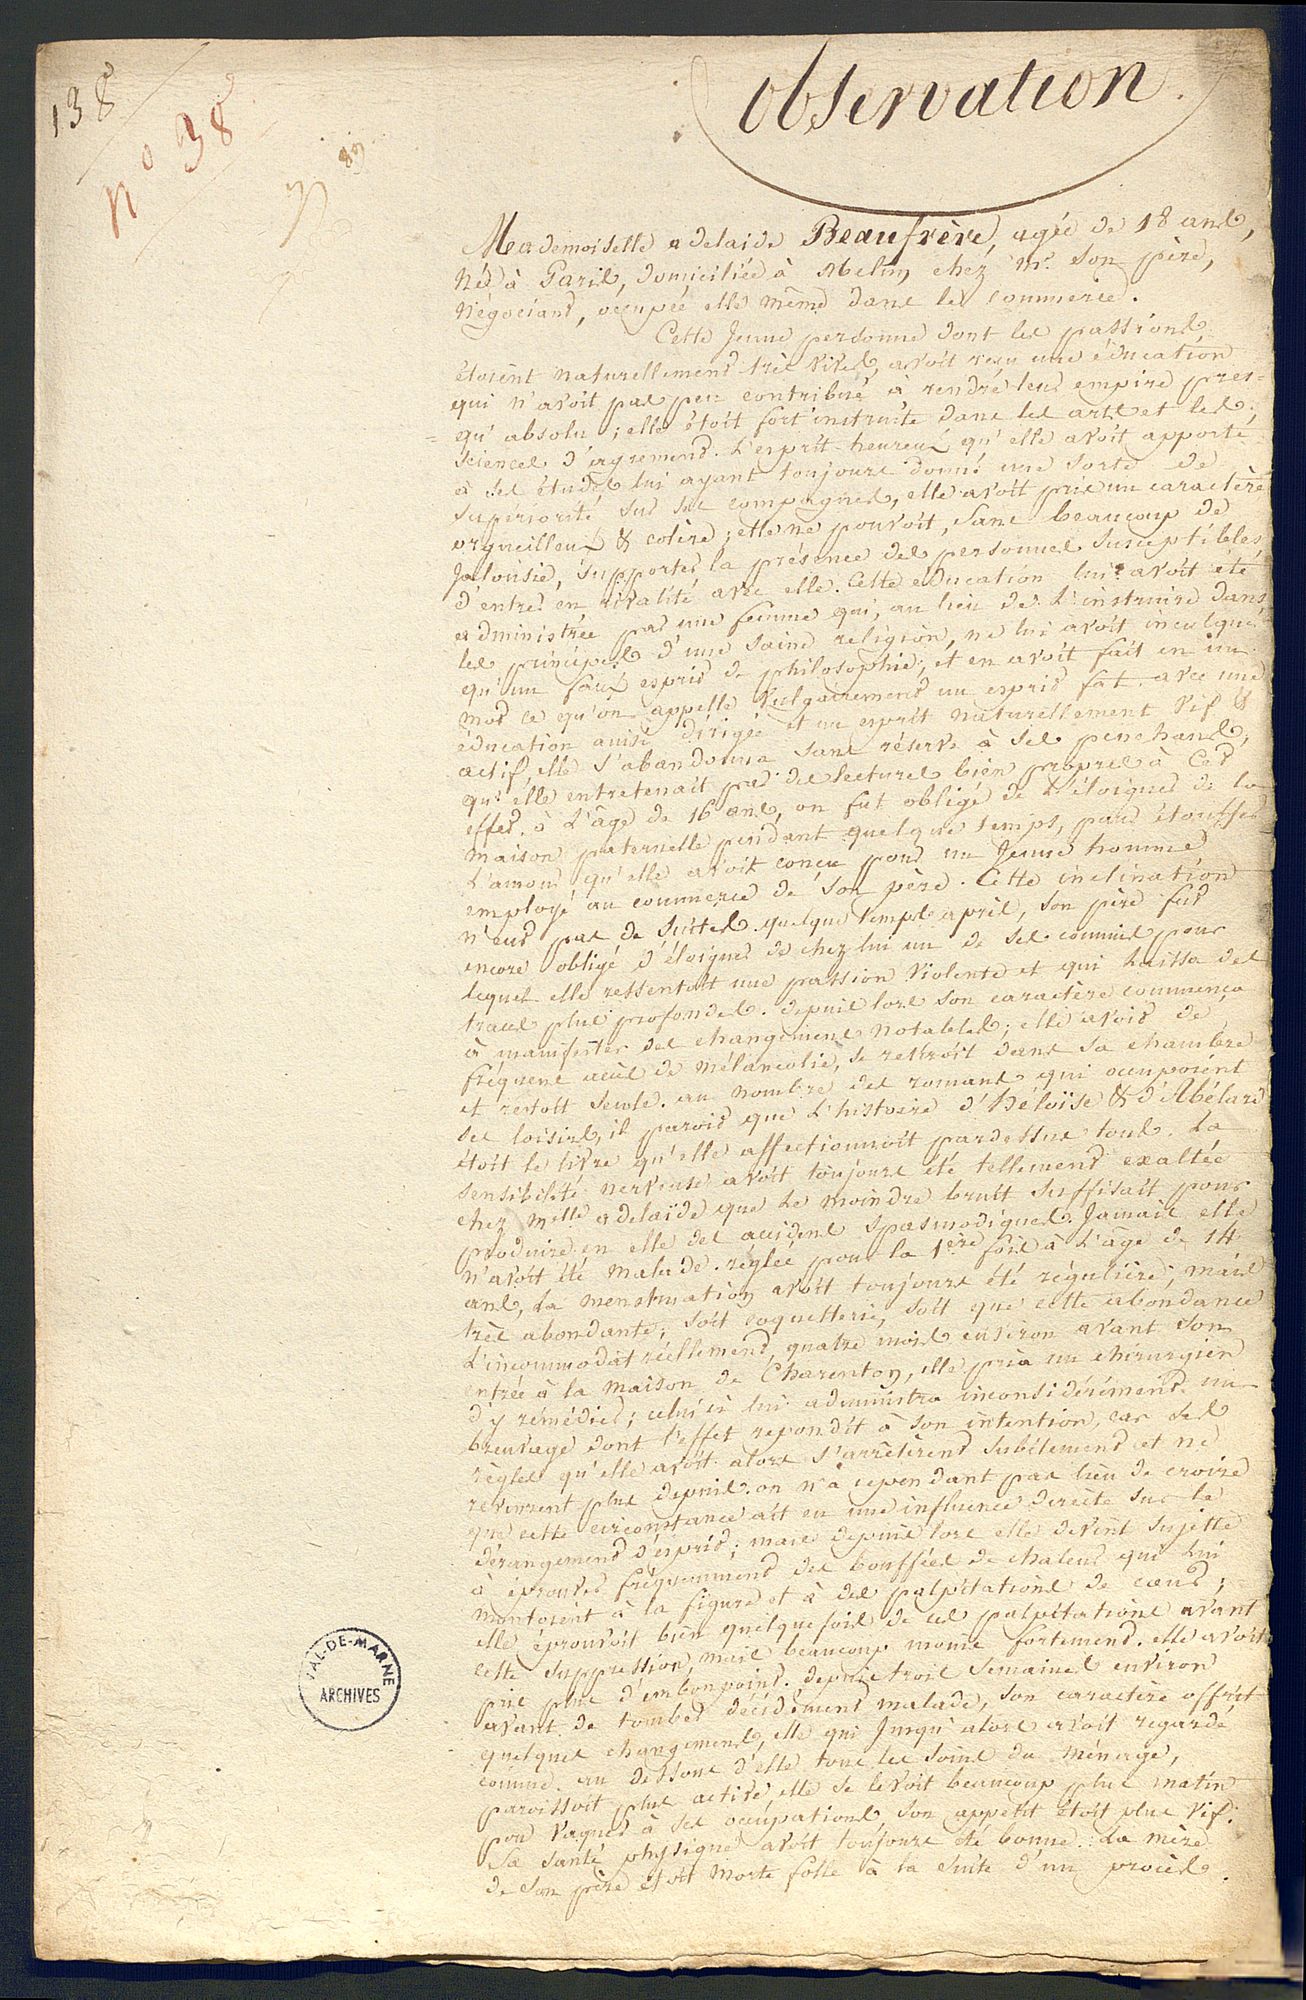 138
n° 38
N° 89
Observation.
Mademoiselle adelaide Beaufrère, agée de 18 ans,
Née à Paris, domiciliée à Melun, chez Mr. son père,
Négociant, occupée elle même dans le commerce.
Cette Jeune personne dont les passions
étoient naturellement très vives, avoit reçu une éducation
qui n'avoit pas peu contribué à rendre leur empire pres-
= qu'absolu; elle étoit fort instruite dans les arts et les
sciences d'agrement. L'esprit heureux qu'elle avoit apporté
à ses études lui ayant toujours donné une sorte de
supériorité sur ses compagnes, elle avoit pris un caractère
orgueilleux & colère; elle ne pouvoit, sans beaucoup de
Jalousie, supporter la présence des personnes susceptibles
d'entrer en rivalité avec elle. Cette éducation lui avoit été
administrée par une femme qui, au lieu de L'instruire dans
les principes d'une saine religion, ne lui avoit inculqué
qu'un faux esprit de philosophie, et en avoit fait en un
mot ce qu'on appelle vulgairement un esprit fat. avec une
éducation ainsi dirigée et un esprit naturellement vif &
actif, elle s'abandonna sans réserve à ses penchans,
qu'elle entretenait par des lectures bien propres à cet
effet. à L'âge de 16 ans, on fut obligé de L'éloigner de la
maison paternelle pendant quelque temps, pour étouffer
L'amour qu'elle avoit conçu pour un Jeune homme
employé au commerce de son père. Cette inclination
n'eut pas de suites. quelque temps après, son père fut
encore obligé d'éloigner de chez lui un de ses commis pour
lequel elle ressentoit une passion violente et qui Laissa des
traces plus profondes. depuis lors son caractère commença
à manifester des changemens notables; elle avoit de
fréquens accès de mélancolie, se retiroit dans sa chambre
et restoit seule. au nombre des romans qui occupoient
ses loisirs, il paroit que L'histoire d'Héloïse & d'Abélard
étoit le livre qu'elle affectionnoit pardessus tout. La
sensibilité nerveuse avoit toujours été tellement exaltée
chez Melle adelaïde que Le moindre bruit suffisait pour
produire en elle des accidens spasmodiques. Jamais elle
n'avoit été malade. réglée pour la 1ère fois à L'âge de 14
ans, La menstruation avoit toujours été régulière, mais
très abondante; soit coquetterie, soit que cette abondance
L'incommodât réellement, quatre mois environ avant son
entrée à la maison de Charenton, elle pria un chirurgien
d'y rémédier; celui ci lui administra inconsidérément un
breuvage dont l'effet repondit à son intention, car ses
règles qu'elle avoit alors s'arrêtèrent subitement et ne
revinrent plus depuis. on n'a cependant pas lieu de croire
que cette circonstance ait eu une influence directe sur le
dérangement d'esprit; mais depuis lors elle devint sujette
à éprouver fréquemment des bouffées de chaleur qui Lui
montoient à la figure et à des palpitations de cœur;
elle éprouvoit bien quelquefois de ces palpitations avant
cette suppression, mais beaucoup moins fortement. elle avoit
pris plus d'embonpoint. depuis trois semaines environ
avant de tomber décidément malade, son caractère offrit
quelques changemens, elle qui Jusqu'alors avoit regardé
comme au dessous d'elle tous les soins du ménage,
paroissoit plus active, elle se levoit beaucoup plus matin
pour vaquer à ses occupations son appétit étoit plus vif.
Sa santé physique avoit toujours été bonne. La mère
de son père étoit morte folle à la suite d'un procès.
VAL-DE-MARNE
ARCHIVES